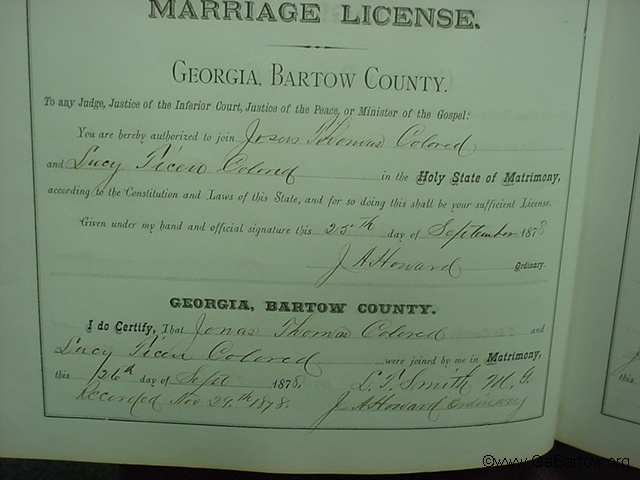 MARRIAGE LICENSE.
GEORGIA, BARTOW COUNTY.
To any Judge, Justice of the Inferior Court, Justice of the Peace, or Minister of the Gospel:
You are hereby authorized to join Thomas Colored
and Lucy Colored in the Holy State of Matrimony,
according to the Constitution and Laws of this State, and for so doing this shall be your sufficient License.
Given under my hand and official signature this 25th day of September 1878
J A Howard Ordinary.
GEORGIA, BARTOW COUNTY.
I do Certify, That Jonas Thomas Colored and
Lucy Colored were joined by me in Matrimony,
this 26th day of Sept 1878, L. P. Smith M. G.
Recorded Nov 29th 1878. J A Howard Ordinary
©www.GaBartow.org